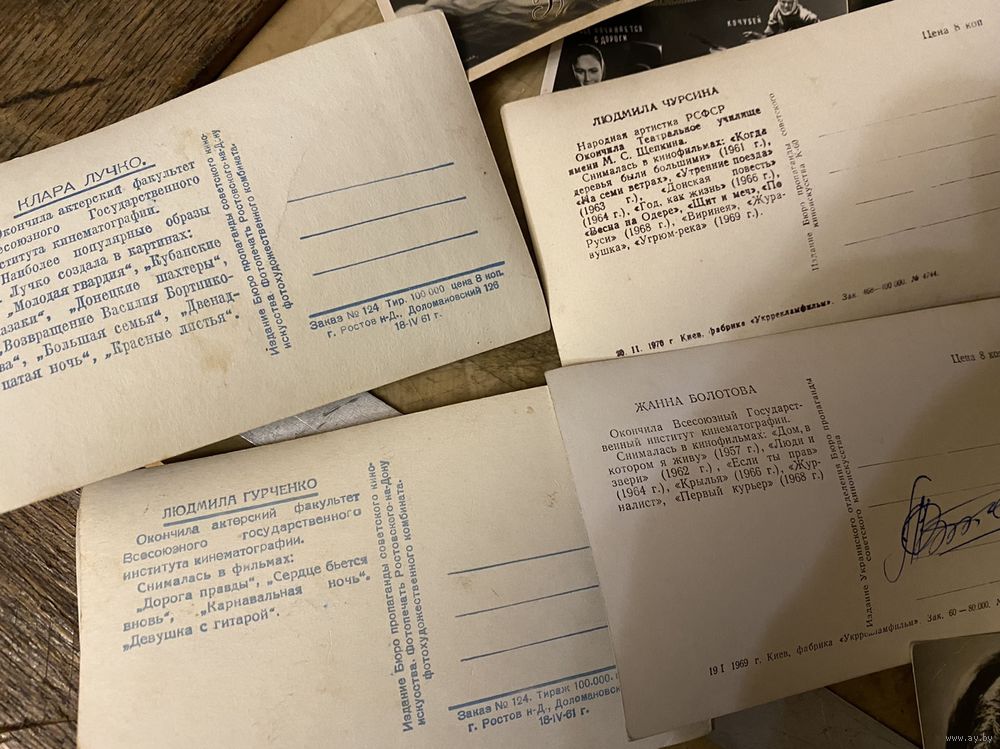 КОЧУБЕЙ
С ДОРОГИ
КЛАРА ЛУЧКО.
Окончила актерский факультет
Всесоюзного Государственного
института кинематографии.
Наиболее популярные образы
Лучко создала в картинах:
„Молодая гвардия“, „Кубанские
казаки“, „Донецкие шахтеры“,
„Возвращение Василия Бортнико-
ва“, „Большая семья“, „Двенад-
цатая ночь“, „Красные листья“.
Издание Бюро пропаганды советского кино-
искусства. Фотопечать Ростовского-на-Дону
фотохудожественного комбината.
Заказ № 124 Тир. 100 000 цена 8 коп.
г. Ростов н-Д., Доломановский 126
18-IV-61 г.
Цена 8 коп
ЛЮДМИЛА ЧУРСИНА
Народная артистка РСФСР
Окончила Театральное училище
имени М. С. Щепкина.
Снималась в кинофильмах: «Когда
деревья были большими» (1961 г.),
«На семи ветрах», «Утренние поезда»
(1963 г.), «Донская повесть»
(1964 г.), «Год, как жизнь» (1966 г.),
«Весна на Одере», «Щит и меч», «По
Руси» (1968 г.), «Виринея», «Жура-
вушка», «Угрюм-река» (1969 г.).
Издание Бюро пропаганды советского
киноискусства К-69
20. 11. 1970 г Киев, фабрика «Укррекламфильм». Зак. 100 000. № 4744.
ЛЮДМИЛА ГУРЧЕНКО
Окончила актерский факультет
Всесоюзного государственного
института кинематографии.
Снималась в фильмах:
„Дорога правды“, „Сердце бьется
вновь“, „Карнавальная ночь“.
„Девушка с гитарой“.
Издание Бюро пропаганды советского кино-
искусства. Фотопечать Ростовского-на-Дону
фотохудожественного комбината.
Заказ № 124. Тираж 100.000.
г. Ростов н-Д., Доломановский
18-IV-61 г.
Цена 8 коп
ЖАННА БОЛОТОВА
Окончила Всесоюзный Государст-
венный институт кинематографии.
Снималась в кинофильмах: «Дом, в
котором я живу» (1957 г.), «Люди и
звери» (1962 г.), «Если ты прав»
(1964 г.), «Крылья» (1966 г.), «Жур-
налист», «Первый курьер» (1968 г.)
Издание Украинского отделения Бюро пропаганды
советского киноискусства
19 I 1969 г. Киев, фабрика «Укррекламфильм». Зак. 60—80.000.
www.ay.by